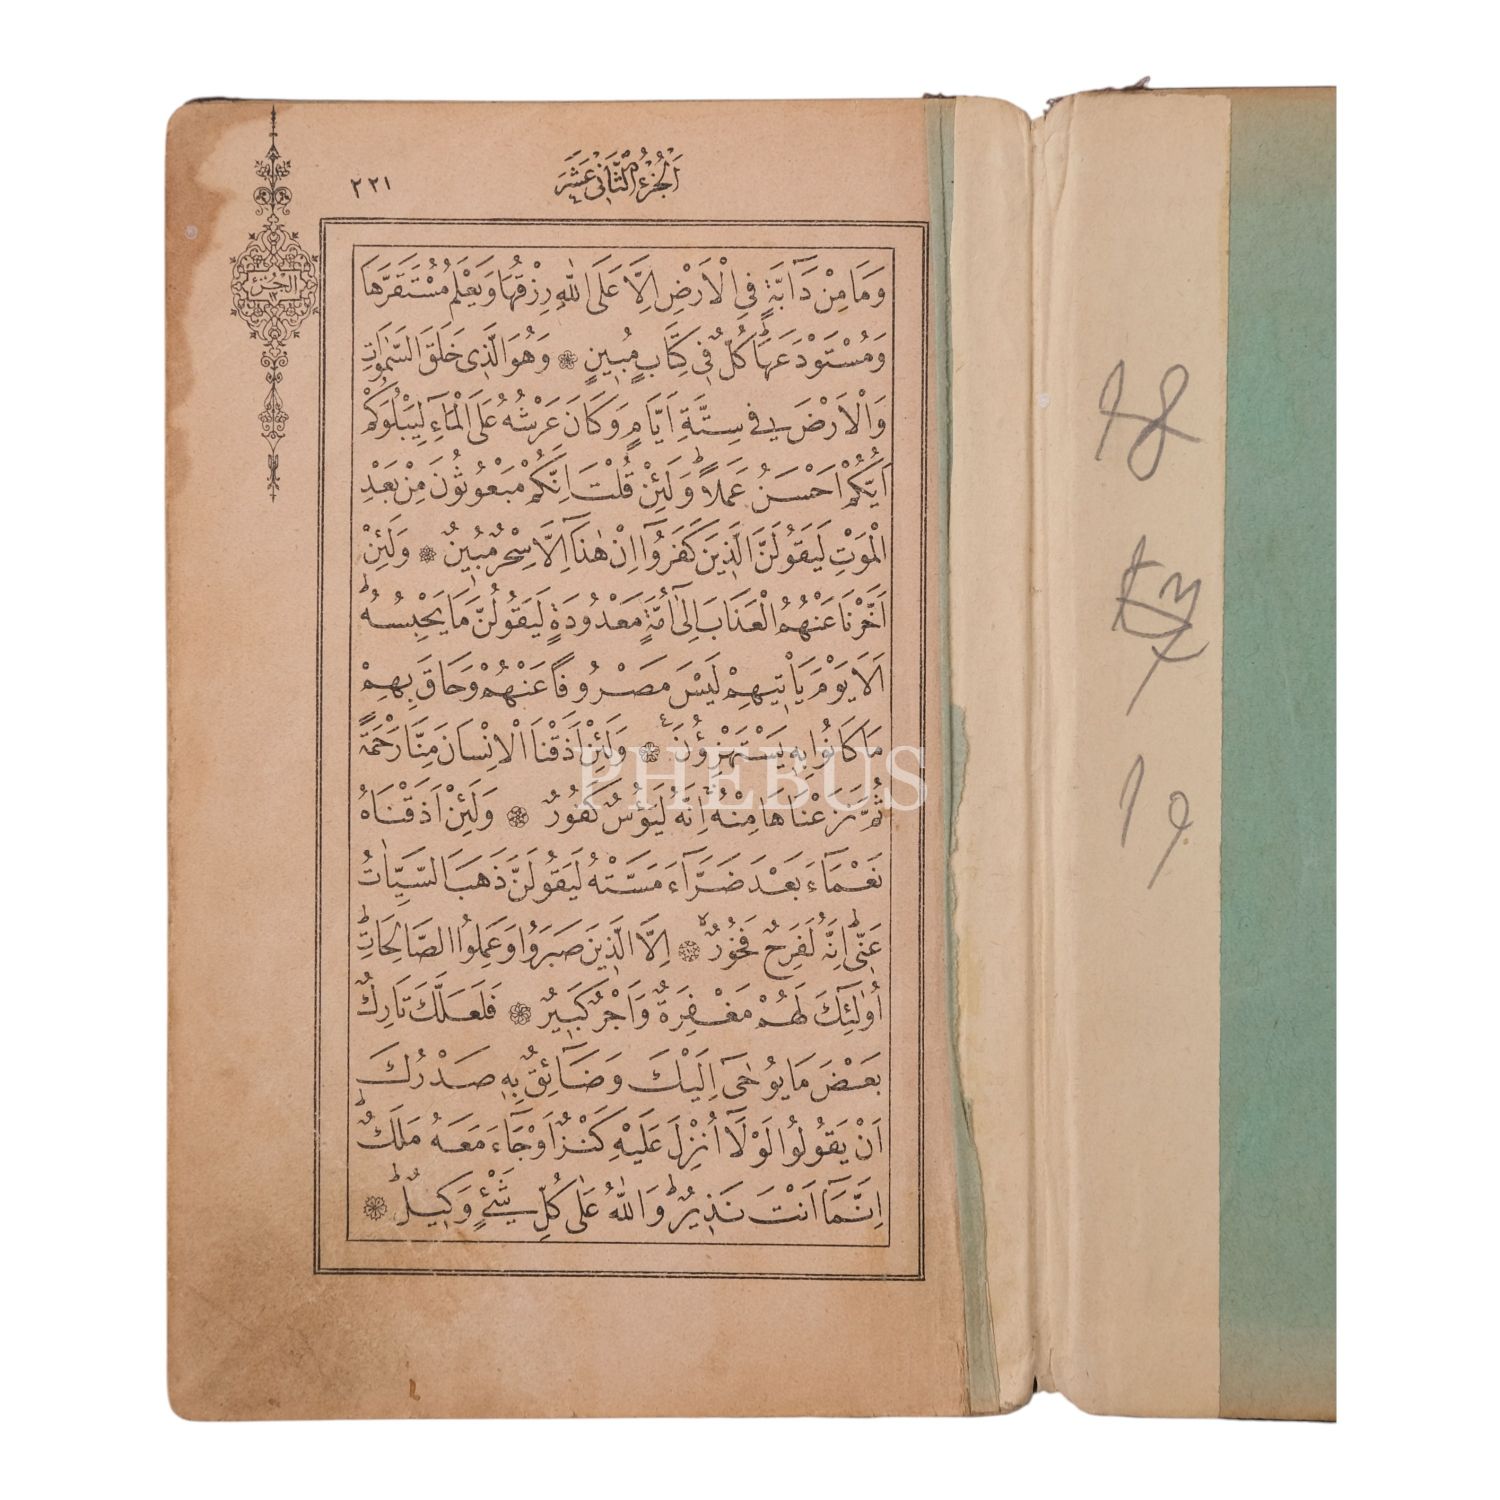 اَلْجُزْءُ الثَّانِى عَشَرَ
٢٢١
الجزء
١٢
وَمَا مِنْ دَٓابَّةٍ فِى الْاَرْضِ اِلَّا عَلَى اللّٰهِ رِزْقُهَا وَيَعْلَمُ مُسْتَقَرَّهَا
وَمُسْتَوْدَعَهَاۜ كُلٌّ فِى كِتَابٍ مُبِينٍ ❁ وَهُوَ الَّذِى خَلَقَ السَّمٰوَاتِ
وَالْاَرْضَ فِى سِتَّةِ اَيَّامٍ وَكَانَ عَرْشُهُ عَلَى الْمَٓاءِ لِيَبْلُوَكُمْ
اَيُّكُمْ اَحْسَنُ عَمَلًاۜ وَلَئِنْ قُلْتَ اِنَّكُمْ مَبْعُوثُونَ مِنْ بَعْدِ
الْمَوْتِ لَيَقُولَنَّ الَّذِينَ كَفَرُٓوا اِنْ هٰذَٓا اِلَّا سِحْرٌ مُبِينٌ ❁ وَلَئِنْ
اَخَّرْنَا عَنْهُمُ الْعَذَابَ اِلٰٓى اُمَّةٍ مَعْدُودَةٍ لَيَقُولُنَّ مَا يَحْبِسُهُۜ
اَلَا يَوْمَ يَأْتِيهِمْ لَيْسَ مَصْرُوفًا عَنْهُمْ وَحَاقَ بِهِمْ
مَا كَانُوا بِهِ يَسْتَهْزِؤُنَ ❁ وَلَئِنْ اَذَقْنَا الْاِنْسَانَ مِنَّا رَحْمَةً
ثُمَّ نَزَعْنَاهَا مِنْهُ اِنَّهُ لَيَؤُسٌ كَفُورٌ ❁ وَلَئِنْ اَذَقْنَاهُ
نَعْمَٓاءَ بَعْدَ ضَرَّٓاءَ مَسَّتْهُ لَيَقُولَنَّ ذَهَبَ السَّيِّاٰتُ
عَنِّىۜ اِنَّهُ لَفَرِحٌ فَخُورٌ ❁ اِلَّا الَّذِينَ صَبَرُوا وَعَمِلُوا الصَّالِحَاتِۜ
اُو۬لٰٓئِكَ لَهُمْ مَغْفِرَةٌ وَاَجْرٌ كَبِيرٌ ❁ فَلَعَلَّكَ تَارِكٌ
بَعْضَ مَا يُوحٰٓى اِلَيْكَ وَضَٓائِقٌ بِهِ صَدْرُكَ
اَنْ يَقُولُوا لَوْلَٓا اُنْزِلَ عَلَيْهِ كَنْزٌ اَوْ جَٓاءَ مَعَهُ مَلَكٌۜ
اِنَّمَٓا اَنْتَ نَذِيرٌۜ وَاللّٰهُ عَلٰى كُلِّ شَىْءٍ وَكِيلٌۜ ❁
PHEBUS